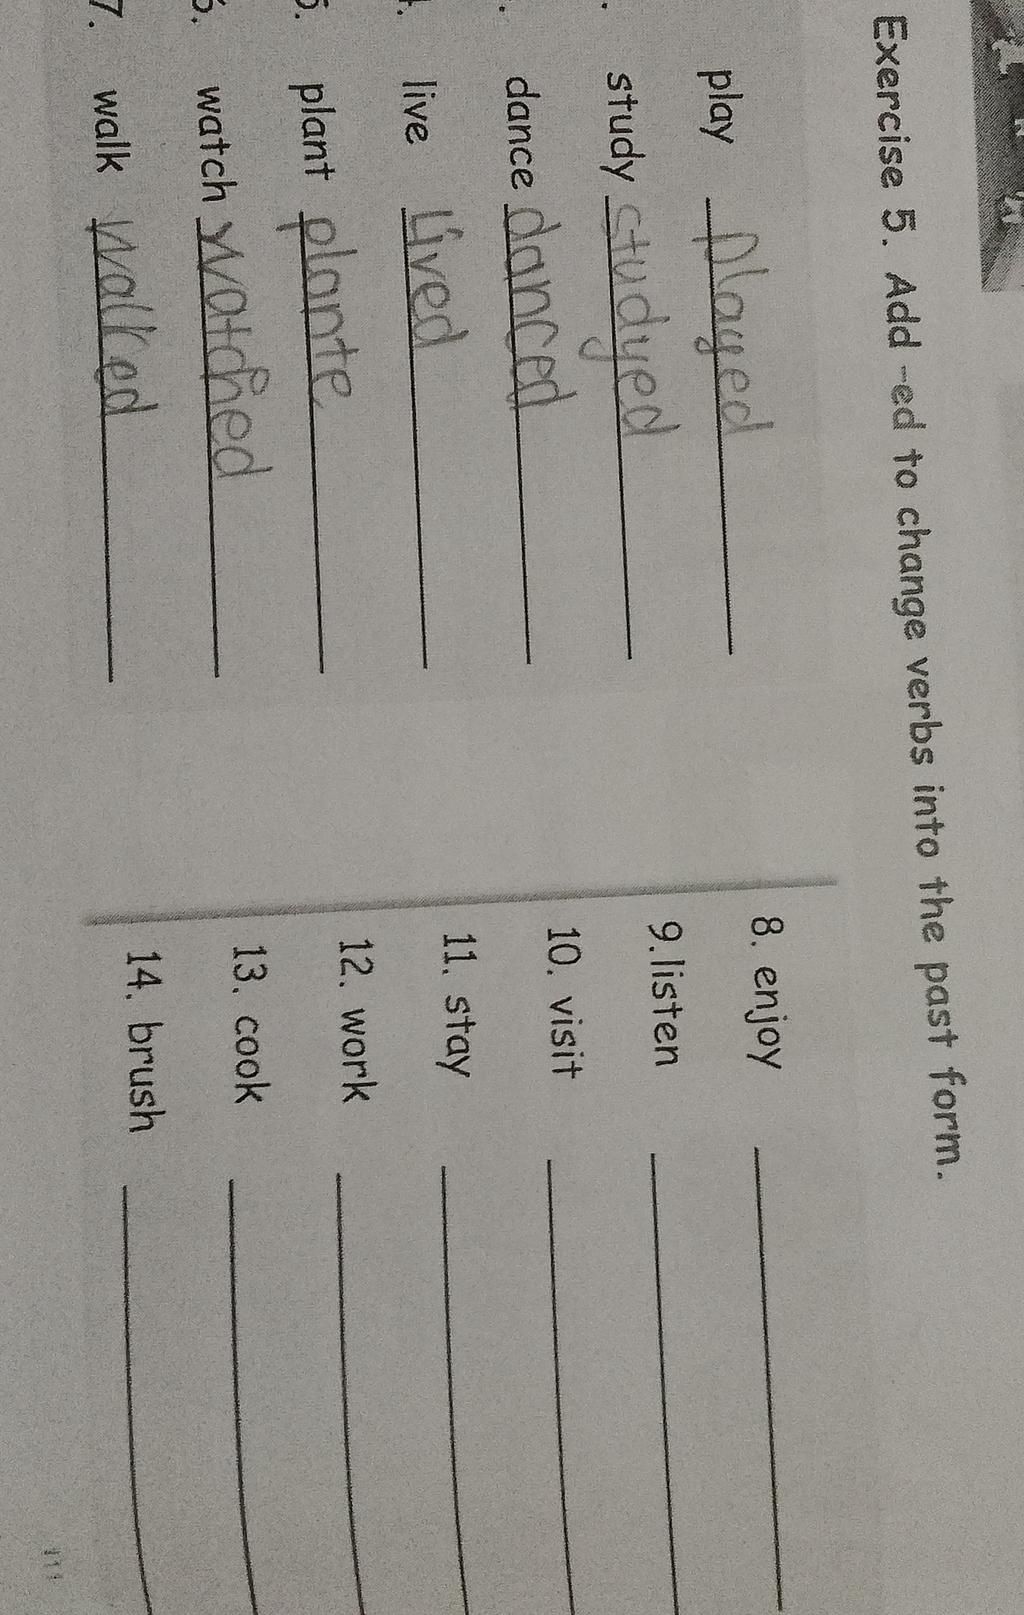 Exercise 5. Add -ed to change verbs into the past form.
play played
study studyed
dance danced
live lived
plant plante
6. watch watched
7. walk walked
8. enjoy
9.listen
10. visit
11. stay
12. work
13. cook
14. brush
111